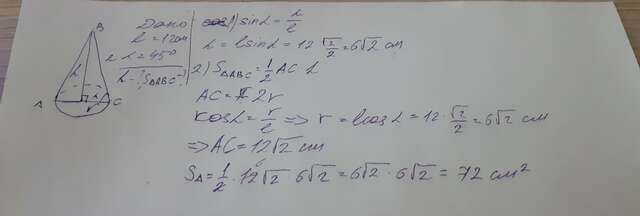 B
Дано
l = 12 см
l
α = 45°
h - ? S△ABC - ?
h
A
α
C
1) sin α = h/l
h = l sin α = 12 √2/2 = 6√2 см
2) S△ABC = 1/2 AC h
AC = 2r
cos α = r/l ⇒ r = l cos α = 12 · √2/2 = 6√2 см
⇒ AC = 12√2 см
S△ = 1/2 · 12√2 · 6√2 = 6√2 · 6√2 = 72 см²